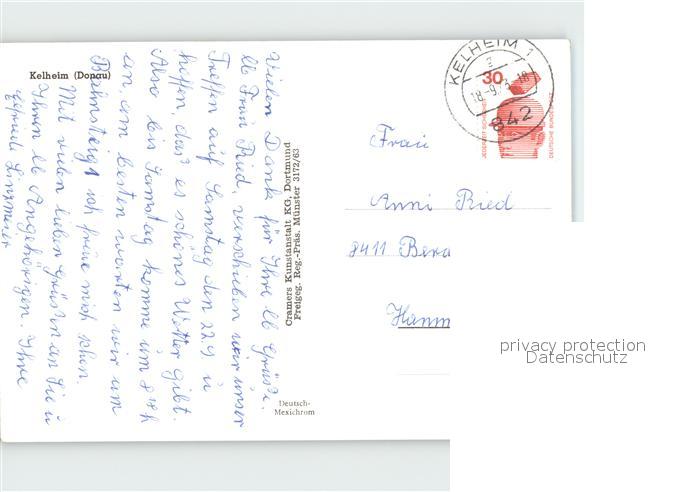 Kelheim (Donau)
Vielen Dank für Ihre lb Grüße.
lb Frau Ried, verschieben wir unser
Treffen auf Samstag den 22 9 u
hoffen, das es schönes Wetter gibt.
Also bis Samstag komme um 8 h
an, am besten warten wir am
Bahnsteig, ich freue mich schon.
Mit vielen lieben Grüßen an Sie u
Ihren lb Angehörigen. Ihre
Linzmeier
Cramers Kunstanstalt KG, Dortmund
Freigeg. Reg.-Präs. Münster 3172/63
Deutsch-
Mexichrom
KELHEIM 1
a
18.-9.73-18
842
30
JEDERZEIT SICHERHEIT
DEUTSCHE BUNDESPOST
Frau
Anni Ried
8411 Bera
Hamm
privacy protection
Datenschutz